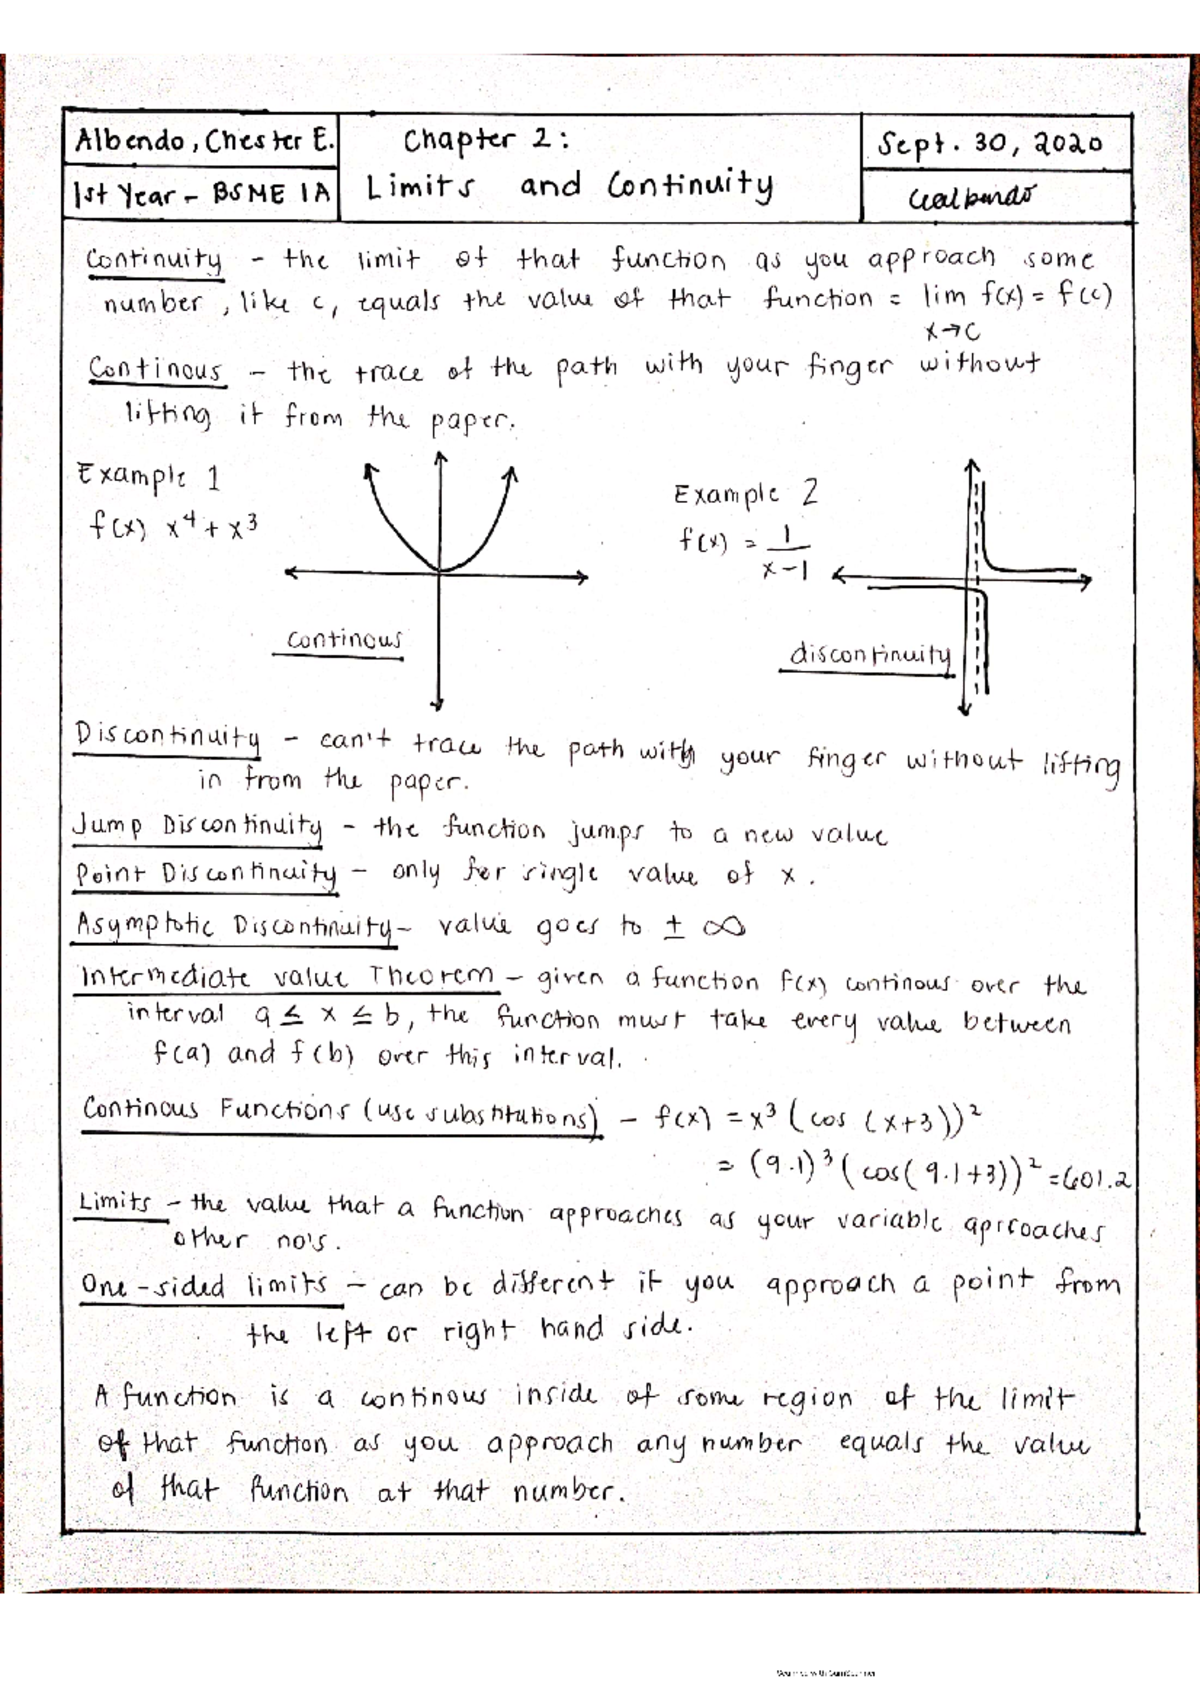 Albendo, Chester E.
1st Year - BSME 1A
Chapter 2:
Limits and Continuity
Sept. 30, 2020
Continuity - the limit of that function as you approach some
number, like c, equals the value of that function = lim f(x) = f(c)
x→c
Continous - the trace of the path with your finger without
lifting it from the paper.
Example 1
f(x) x⁴ + x³
continous
Example 2
f(x) = 1
x-1
discontinuity
Discontinuity - can't trace the path with your finger without lifting
in from the paper.
Jump Discontinuity - the function jumps to a new value
Point Discontinuity - only for single value of x.
Asymptotic Discontinuity - value goes to ± ∞
Intermediate value Theorem - given a function f(x) continous over the
interval a ≤ x ≤ b, the function must take every value between
f(a) and f(b) over this interval.
Continous Functions (use substitutions) - f(x) = x³ (cos (x+3))²
= (9.1)³ (cos(9.1+3))² = 601.2
Limits - the value that a function approaches as your variable aprroaches
other no's.
One-sided limits - can be different if you approach a point from
the left or right hand side.
A function is a continous inside of some region of the limit
of that function as you approach any number equals the value
of that function at that number.